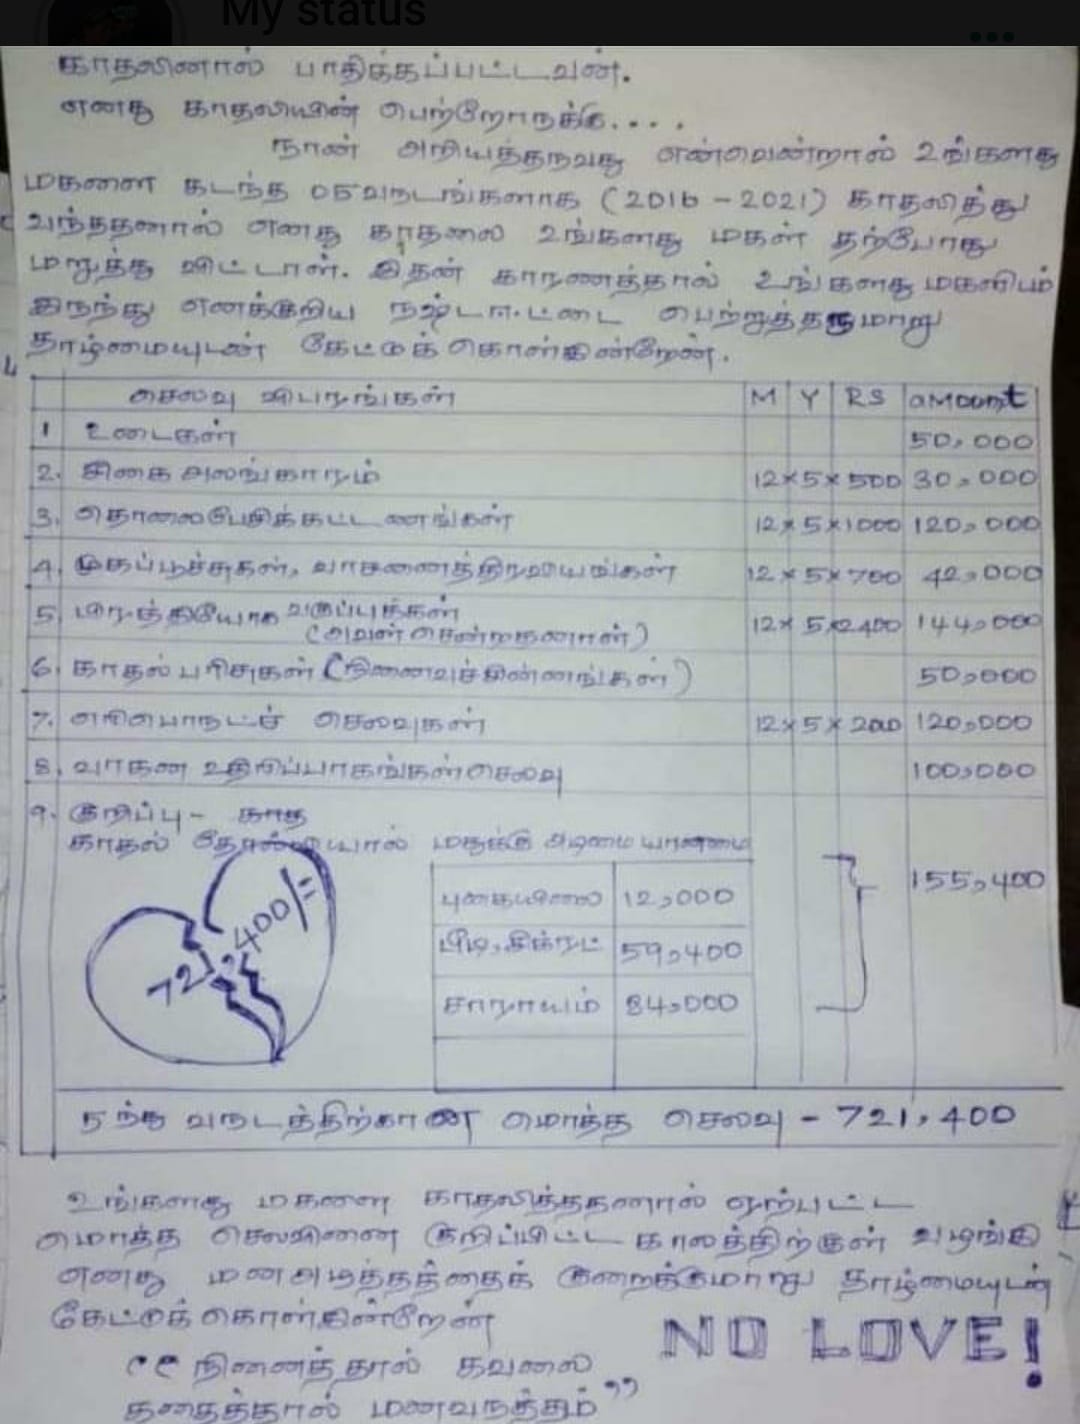 My status
காதலினால் பாதிக்கப்பட்டவன்.
எனது காதலியின் பெற்றோருக்கு....
நான் அறியத்தருவது என்வென்றால் உங்களது
மகளை கடந்த 05வருடங்களாக (2016 - 2021) காதலித்து
வந்ததனால் எனது காதலை உங்களது மகள் தற்போது
மறுத்து விட்டாள். இதன் காரணத்தால் உங்களது மகளிடம்
இருந்து எனக்குறிய நஷ்டஈட்டை பெற்றுத்தருமாறு
தாழ்மையுடன் கேட்டுக் கொள்கின்றேன்.
செலவு விபரங்கள் M Y RS amount
1 உடைகள் 50,000
2. சிகை அலங்காரம் 12×5×500 30,000
3. தொலைபேசிக்கட்டணங்கள் 12×5×1000 120,000
4. முகப்பூச்சுகள், வாசனைத்திரவியங்கள் 12×5×700 42,000
5. பிரத்தியேக வகுப்புக்கள்
(அவள் சென்றதனால்) 12×5×2400 144,000
6. காதல் பரிசுகள் (நினைவுச்சின்னங்கள்) 50,000
7. எரிபொருட்ச் செலவுகள் 12×5×200 120,000
8. வாகன உதிரிப்பாகங்கள் செலவு 100,000
9. குறிப்பு - காத
காதல் தோல்வியால் மதுக்கு அடிமையானமை
புகையிலை 12,000
பீடி, சிக்ரட் 59,400
சாராயம் 84,000
155,400
721,400/=
5 ந்து வருடத்திற்கான மொத்த செலவு - 721,400
உங்களது மகளை காதலித்ததனால் ஏற்பட்ட
மொத்த செலவினை குறிப்பிட்ட காலத்திற்குள் வழங்கி
எனது மனஅழுத்தத்தைக் குறைக்குமாறு தாழ்மையுடன்
கேட்டுக் கொள்கின்றேன்
NO LOVE!
"நினைத்தால் கவலை
கதைத்தால் மனவருத்தம்"